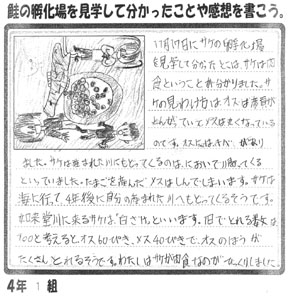 鮭の孵化場を見学して分かったことや感想を書こう。
11月17日にサケの孵化場
を見学して分かったことは、サケは肉
食ということがわかりました。サ
ケの見わけ方は、オスは鼻が
とんがっていてメスは丸くなっている
のです。オスには、キバ
ました。サケは産まれた川にもどってくるのは、においで川へ帰ってくる
といっていました。たまごを産んだメスはしんでしまいます。サケは
海に行て、4年後に自分の産まれた川へもどってくるそうです。
如来堂川に来るサケは、白ざけといいます。1日でとれる数は
100と考えるとオス60ぴき、メス40ぴきで、オスのほうが
たくさんとれるそうです。わたしはサケが肉食なのがびっくりしました。
4年 1 組